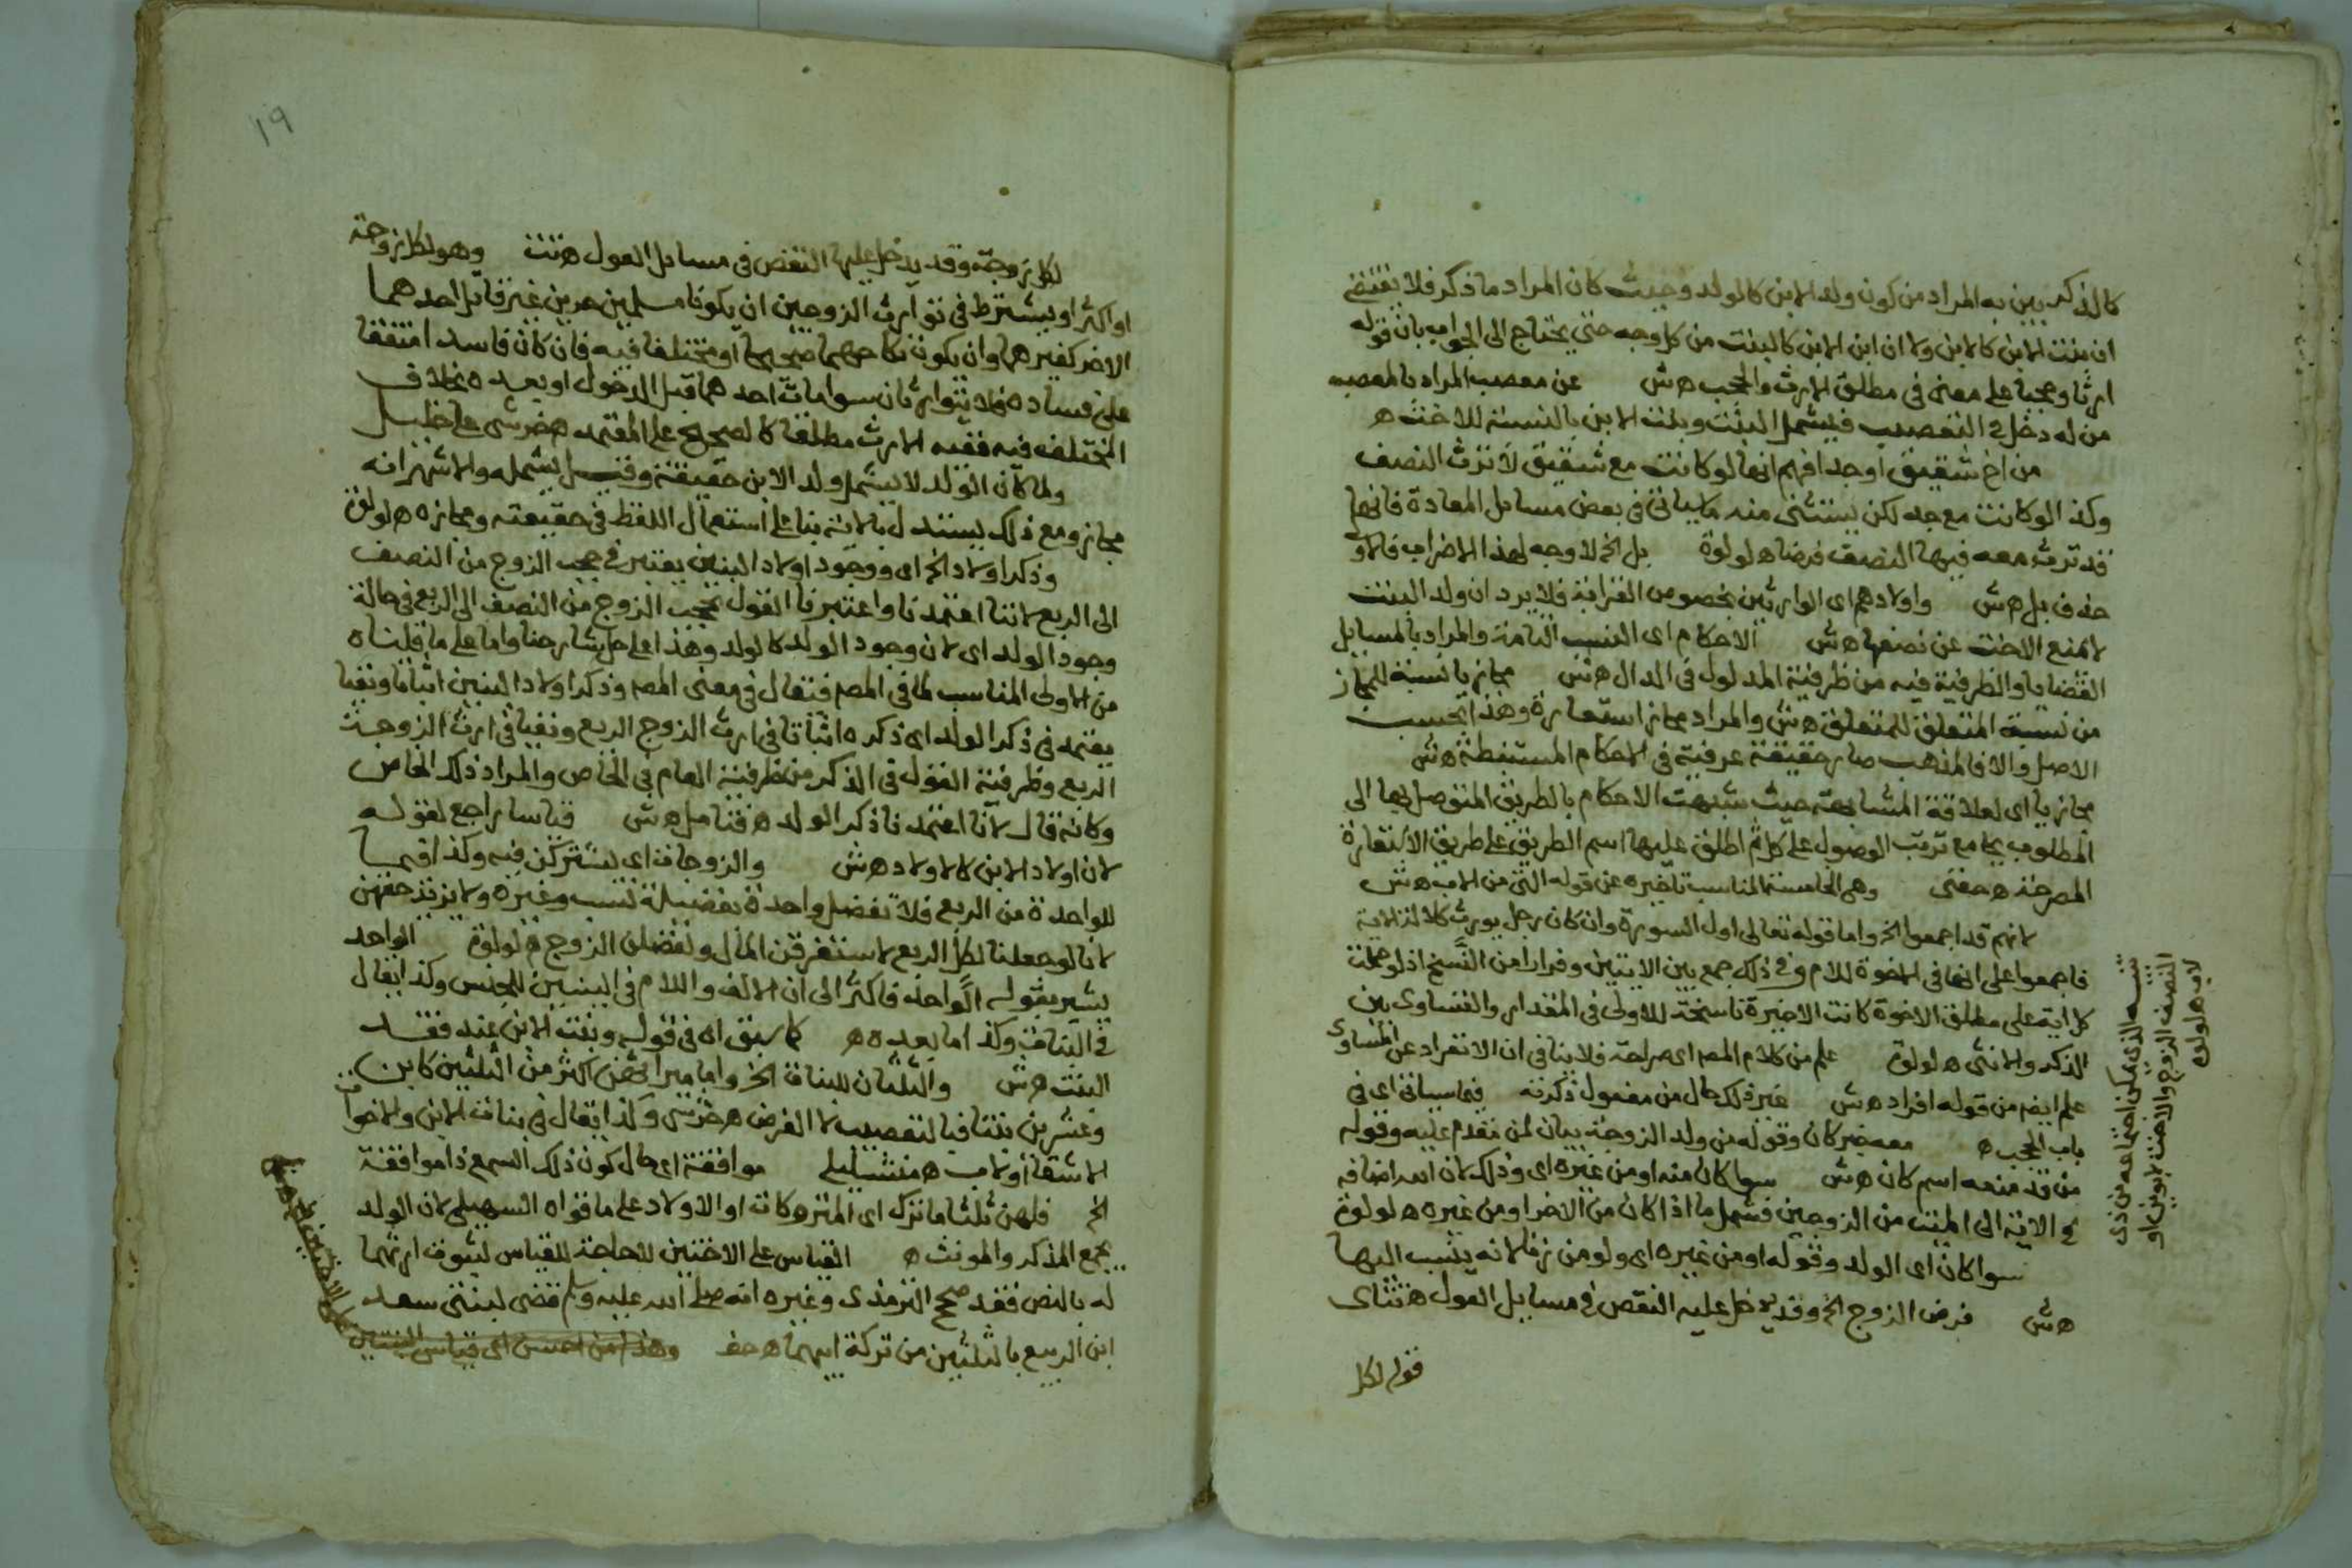 كالذكر يبين به المراد من كون ولد الابن كالولد وحيث كان المراد ما ذكر فلا يقتضى
ان بنت الابن كالابن ولا ان ابن الابن كالبنت من كل وجه حتى يحتاج الى الجواب بان قوله
ارثا وحجبا على معنى فى مطلق الارث والحجب ه ش عن معصب المراد بالمعصب
من له دخل فى التعصيب فيشمل البنت وبنت الابن بالنسبة للاخت ه
من اخ شقيق او جد افهم انها لو كانت مع شقيق لا ترث النصف
وكذا لو كانت مع جد لكن يستثنى منه ما ياتى فى بعض مسايل المعادة فانها
قد ترث معه فيها النصف فرضا ه لولوة بل الخ لا وجه لهذا الاضراب فالاولى
حذف بل ه ش واولادهم اى الوارثين بخصوص القرابة فلا يرد ان ولد البنت
لا تمنع الاخت عن نصفها ه ش الاحكام اى النسب التامة والمراد بالمسايل
القضايا والظرفية فيه من ظرفية المدلول فى الدال ه ش مجاز بالنسبة للمجاز
من نسبة المتعلق للمتعلق ه ش والمراد مجاز استعارة وهذا بحسب
الاصل والا فالمذهب صار حقيقة عرفية فى الاحكام المستنبطة ه ش
مجازيا اى لعلاقة المشابهة حيث شبهت الاحكام بالطريق المتوصل بها الى
المطلوب بجامع ترتب الوصول على كل ثم اطلق عليها اسم الطريق على طريق الاستعارة
المصرحة ه حفنى وهى الخامسة المناسب تاخيره عن قوله التى من الاب ه ش
لانهم قد اجمعوا الخ واما قوله تعالى اول السورة وان كان رجل يورث كلالة الاية
فاجمعوا على انها فى الاخوة للام وفى ذلك جمع بين الايتين وفرارا من النسخ اذ لو حملت
كل اية على مطلق الاخوة كانت الاخيرة ناسخة للاولى فى المقدار والتساوى بين
الذكر والانثى ه لولوة علم من كلام المص اى صراحة فلا ينافى ان الانفراد عن المساوى
علم ايضا من قوله افراد ه ش غير ذلك حال من مفعول ذكرته فيما سياتى اى فى
باب الحجب ه معه خبر كان وقوله من ولد الزوجة بيان لمن تقدم عليه وقوله
من قد منعه اسم كان ه ش سوا كان منه او من غيره اى وذلك لان الله اضافه
فى الاية الى الميت من الزوجين فشمل ما اذا كان من الاخر او من غيره ه لولوة
سوا كان اى الولد وقوله او من غيره اى ولو من زنا لانه ينسب اليها
ه ش فرض الزوج الخ وقد يدخل عليه النقص فى مسايل العول ه شاى
قوله لكل
الذى يمكن اجتماعه من ذى
النصف الزوج والاخت لابوين او
لاب ه لولوة
١٩
لكل زوجة وقد يدخل عليها النقص فى مسايل العول ه وهو لكل زوجة
او اكثر او يشترط فى توارث الزوجين ان يكونا مسلمين حرين غير قاتل احدهما
الاخر كغيرهما وان يكون نكاحهما صحيحا او مختلفا فيه فان كان فاسدا متفقا
على فساده فلا يتوارثان سوا مات احدهما قبل الدخول او بعده بخلاف
المختلف فيه ففيه الارث مطلقا كالصحيح على المعتمد ه خرشى على خليل
ولما كان الولد لا يشمل ولد الابن حقيقة وقيل يشمله والاشهر انه
مجاز ومع ذلك يستدل بالاية بنا على استعمال اللفظ فى حقيقته ومجازه ه لولوة
وذكر اولاد الخ اى ووجود اولاد البنين يعتبر فى حجب الزوج من النصف
الى الربع لاننا اعتمدنا واعتبرنا القول بحجب الزوج من النصف الى الربع فى حالة
وجود الولد اى لان وجود الولد كالولد وهذا على حل شارحنا واما على ما قلناه
من الاولى المناسب لما فى المص فيقال فى معنى المص وذكر اولاد البنين اثباتا ونفيا
يعتمد فى ذكر الولد اى ذكره اثباتا فى ارث الزوج الربع ونفيا فى ارث الزوجة
الربع وظرفية القول فى الذكر من ظرفية العام فى الخاص والمراد ذلك الخاص
وكانه قال لانا اعتمدنا ذكر الولد ه فتامل ه ش قياسا راجع لقوله
لان اولاد الابن كالاولاد ه ش والزوجات اى يشتركن فيه وكذا قيما
للواحدة من الربع فلا تفضل واحدة بفضيلة نسب وغيره ولا يزيد حقهن
لانا لو جعلنا لكل الربع لاستغرقن المال ولفضلن الزوج ه لولوة الواحد
يشير بقوله الواحد فاكثر الى ان الالف واللام فى البنين للجنس وكذا يقال
فى البنات وكذا ما بعده ه كما سبق اى فى قوله وبنت الابن عند فقد
البنت ه ش والثلثان للبنات الخ واما ميراثهن اكثر من الثلثين كابن
وعشرين بنتا فبالتعصيب لا الفرض ه خرشى وكذا يقال فى بنات الابن والاخوات
الاشقا او لاب ه موافقة اى حال كون ذلك السمع ذا موافقة
الخ فلهن ثلثا ما ترك اى المتروكات او الاولاد على ما قواه السهيلى لان الولد
يجمع المذكر والمونث ه القياس على الاختين لا حاجة للقياس لثبوت ارثهما
له بالنص فقد صحح الترمذى وغيره انه صلى الله عليه وسلم قضى لبنتى سعد
ابن الربيع بالثلثين من تركة ابيهما ه حف وهذا من احسن اى قياس البنتين